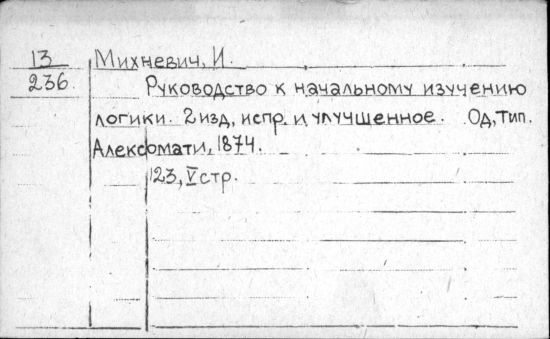 13 Михневич, И.
236. Руководство к начальному изучению
логики. 2 изд, испр. и улучшенное. Од, тип.
Алексомати, 1874.
123, V стр.